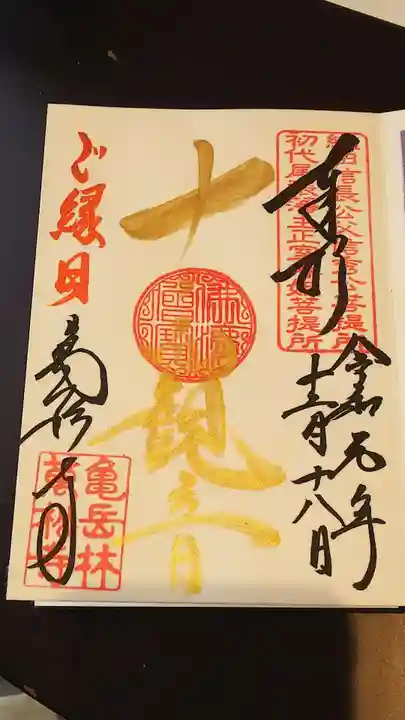 織田信長公父信秀公菩提所
初代尾張藩主正室春姫菩提所
奉拝
令和元年
十二月十八日
十一面観音
佛法僧寶
ご縁日
萬松寺
亀岳林
萬松寺